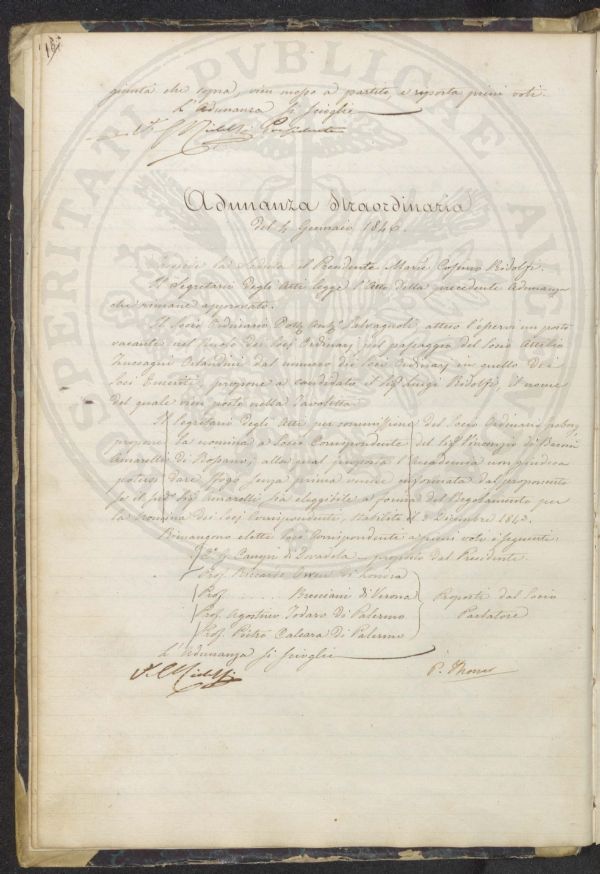 giunta che sopra, vien messo a partito e riporta pieni voti.
L'Adunanza si scioglie
Ridolfi Presidente
Adunanza straordinaria
del 4 Gennaio 1846
Presiede la Seduta il Presidente March. Cosimo Ridolfi.
Il Segretario degli Atti legge l'Atto della precedente Adunanza
che rimane approvato.
Il Socio Ordinario Dott. Salvagnoli, atteso l'esservi un posto
vacante nel ruolo dei Socj Ordinarj pel passaggio del Socio Attilio
Zuccagni Orlandini dal numero dei Soci Ordinarj in quello dei
Soci Emeriti, propone a candidato il Sig. Luigi Ridolfi, il nome
del quale vien posto nella Tavoletta.
Il Segretario degli Atti per commissione del Socio Ordinario
propone la nomina a Socio Corrispondente del Sig. Vincenzio dei Baroni
Amarelli di Rossano; alla qual proposta l'Accademia non giudica
potersi dare sfogo senza prima venire informata dal proponente
se il Sig. Amarelli, sia eleggibile a forma del Regolamento per
la nomina dei Socj Corrispondenti, stabilito il 3 Dicembre 1843.
Rimangono eletti Soci Corrispondenti a pieni voti i seguenti:
di Dovadola – proposto dal Presidente.
Prof. Riccardo Owen di Londra
Prof. .... Bresciani di Verona
Proposti dal Socio
Prof. Agostino Todaro di Palermo
Parlatore
Prof. Pietro Calcara di Palermo
L'Adunanza si scioglie
Ridolfi
P. Thouar
PROSPERITATI PUBLICAE AUG